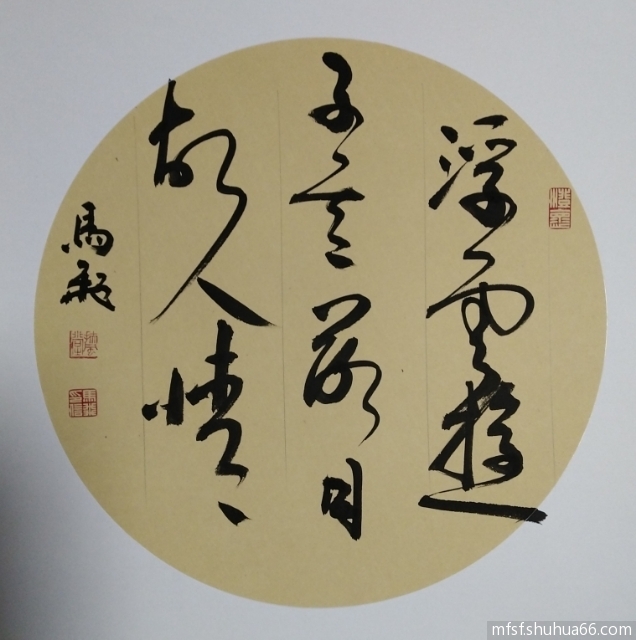 浮雲遊
子意落日
故人情
馬
mfsfshuhua66.com